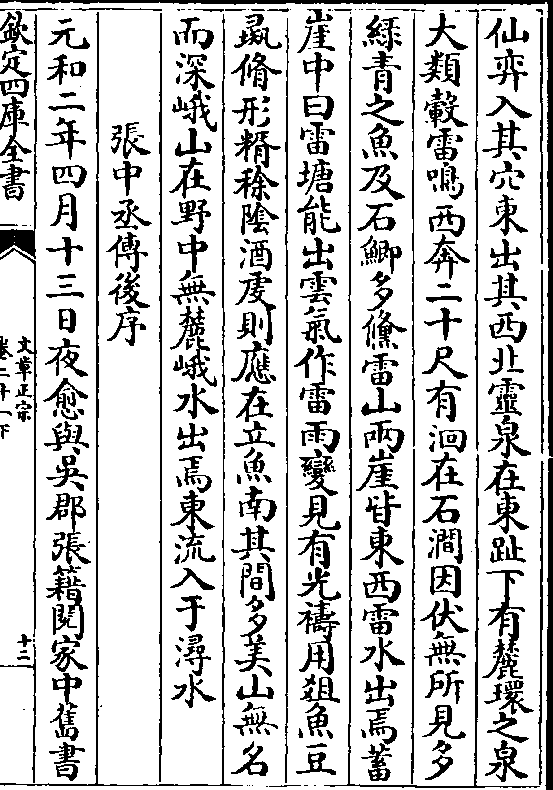 仙弈入其穴東出其西北靈泉在東趾下有麓環之泉
大類轂雷鳴西奔二十尺有洄在石澗因伏無所見多
綠青之魚及石鯽多鯈雷山兩崖皆東西雷水出焉蓄
崖中曰雷塘能出雲氣作雷雨變見有光禱用俎魚豆
彘脩形糈稌陰酒虔則應在立魚南其間多美山無名
而深峨山在野中無麓峨水出焉東流入于潯水
張中丞傳後序
元和二年四月十三日夜愈與吳郡張籍閱家中舊書
欽定四庫全書
文章正宗
卷二十一下
十二